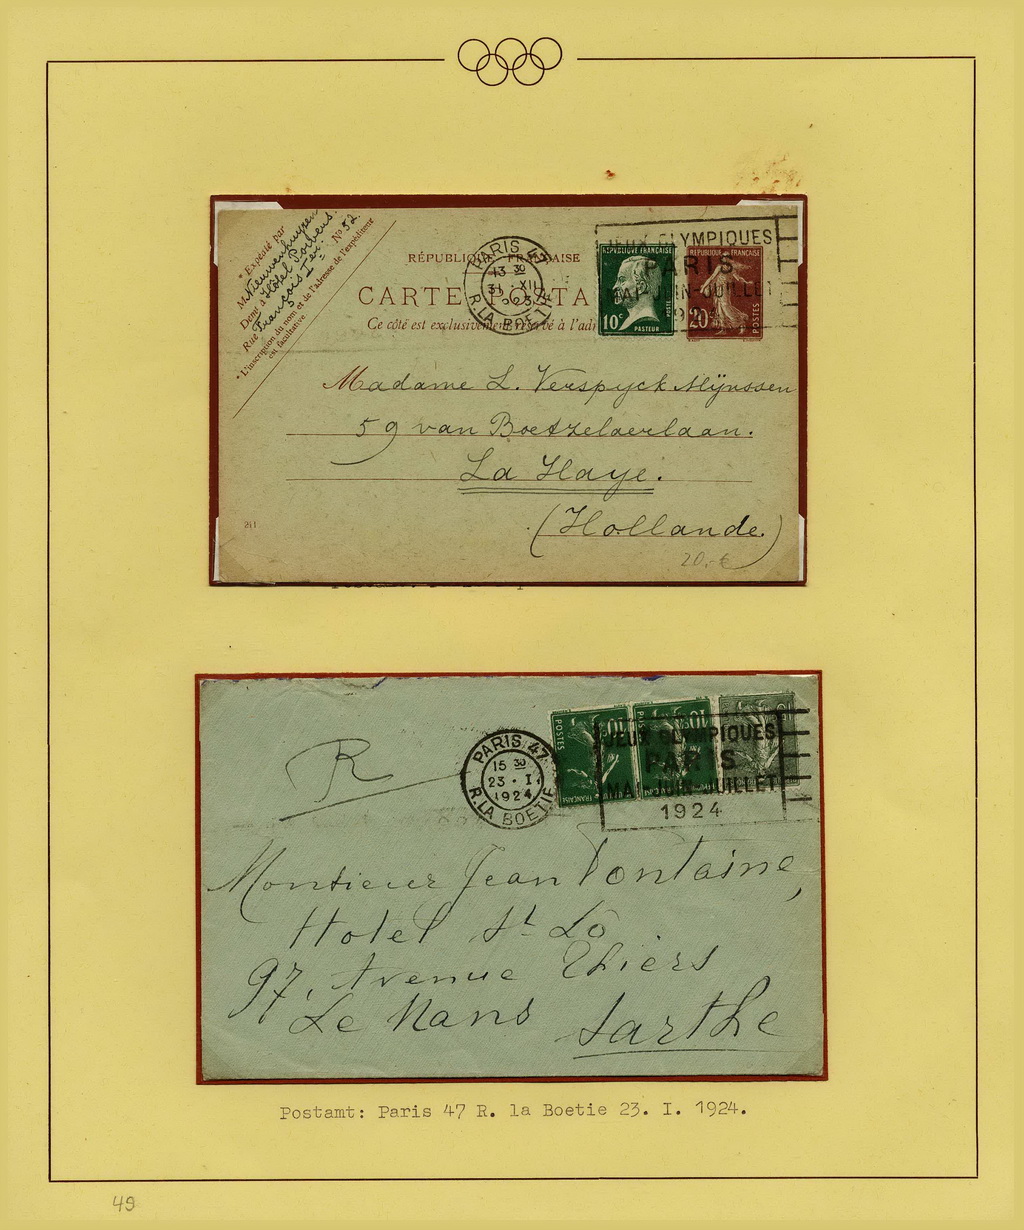 * Expédié par
M Nieuwenhuyzen
Demt à Hôtel Powers.
Rue François Ier. No 52.
* L'inscription du nom et de l'adresse de l'expéditeur
est facultative
RÉPUBLIQUE FRANÇAISE
CARTE POSTA
Ce côté est exclusivement réservé à l'adr
PARIS 47
13 30
31 XII
1923
R. LA BOETIE
JEUX OLYMPIQUES
PARIS
MAI-JUIN-JUILLET
1924
RÉPUBLIQUE FRANÇAISE
POSTES
10c
PASTEUR
RÉPUBLIQUE FRANÇAISE
20c
POSTES
Madame L. Verspyck Mijnssen
59 van Boetzelaerlaan.
La Haye.
(Hollande.)
211
20,-€
R
PARIS 47
15 30
23 · I.
1924
R. LA BOETIE
POSTES
10c
POSTES
10c
JEUX OLYMPIQUES
PARIS
MAI-JUIN-JUILLET
1924
Monsieur Jean Fontaine,
Hotel St Lô
97, Avenue Thiers
Le Mans Sarthe
Postamt: Paris 47 R. la Boetie 23. I. 1924.
49